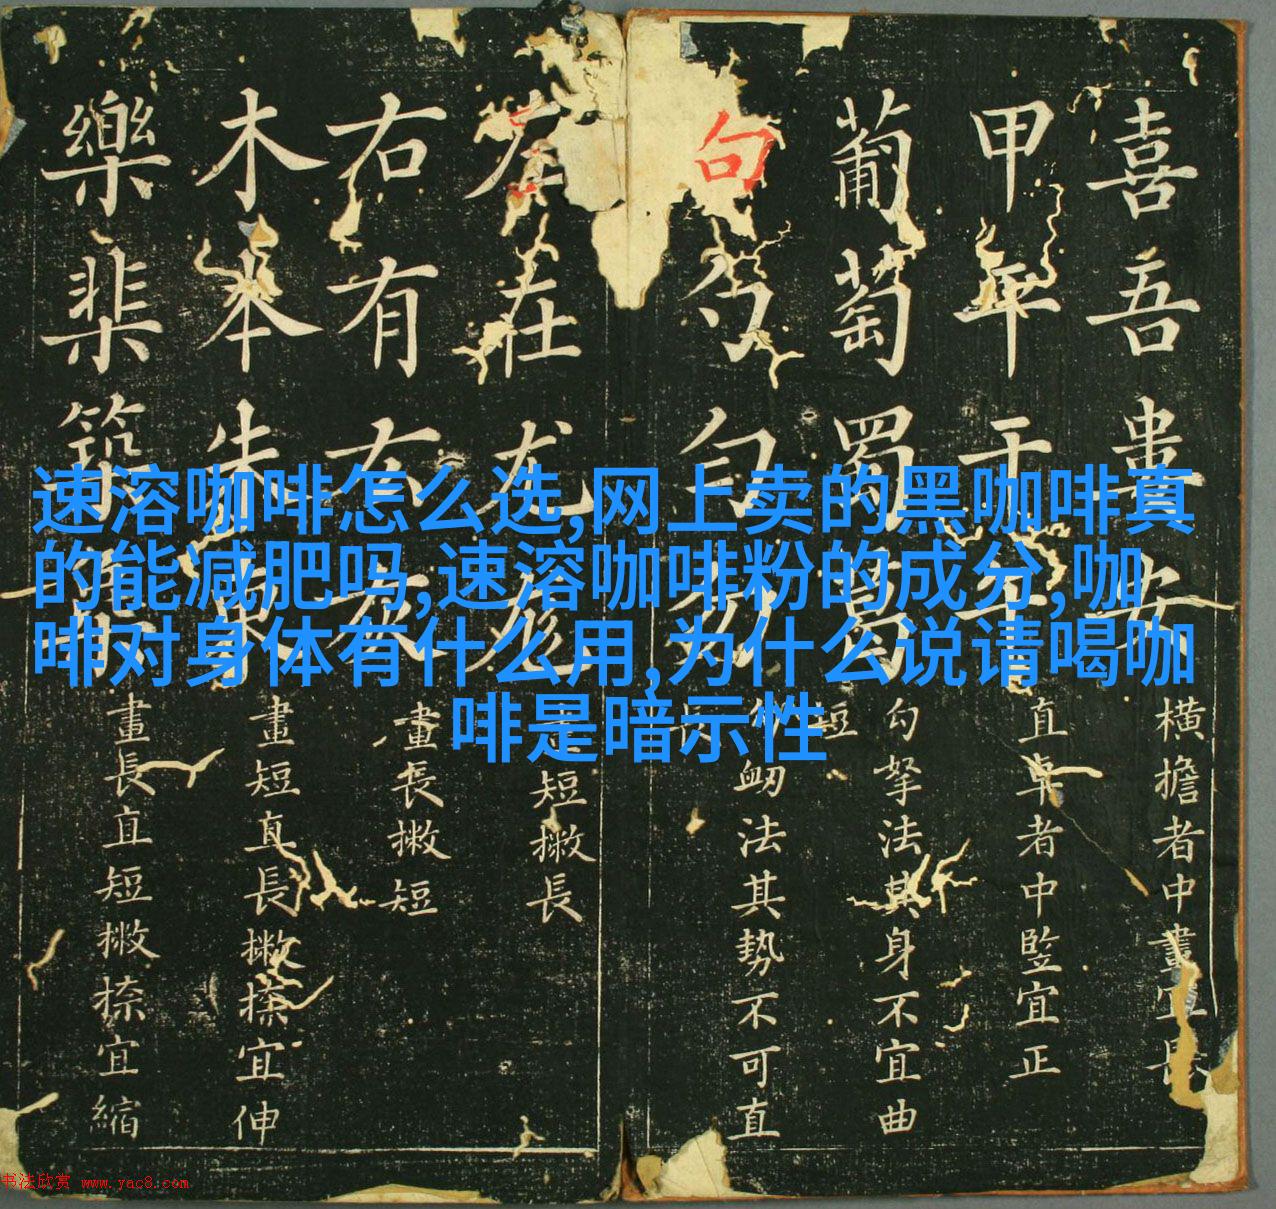 速溶咖啡怎么选,网上卖的黑咖啡真
的能减肥吗,速溶咖啡粉的成分,咖
啡对身体有什么用,为什么说请喝咖
啡是暗示性
喜吾安
横擔者中畫宜長
甲平干
直卓者中竪宜正
葡萄蜀曷
勾拏法其身不宜曲
句勺勻
法其势不可直
左在尤
短撇長
右有
畫長撇短
木本朱
畫短直長撇捺宜伸
樂棐築
畫長直短撇捺宜縮
书法欣赏 www.yac8.com